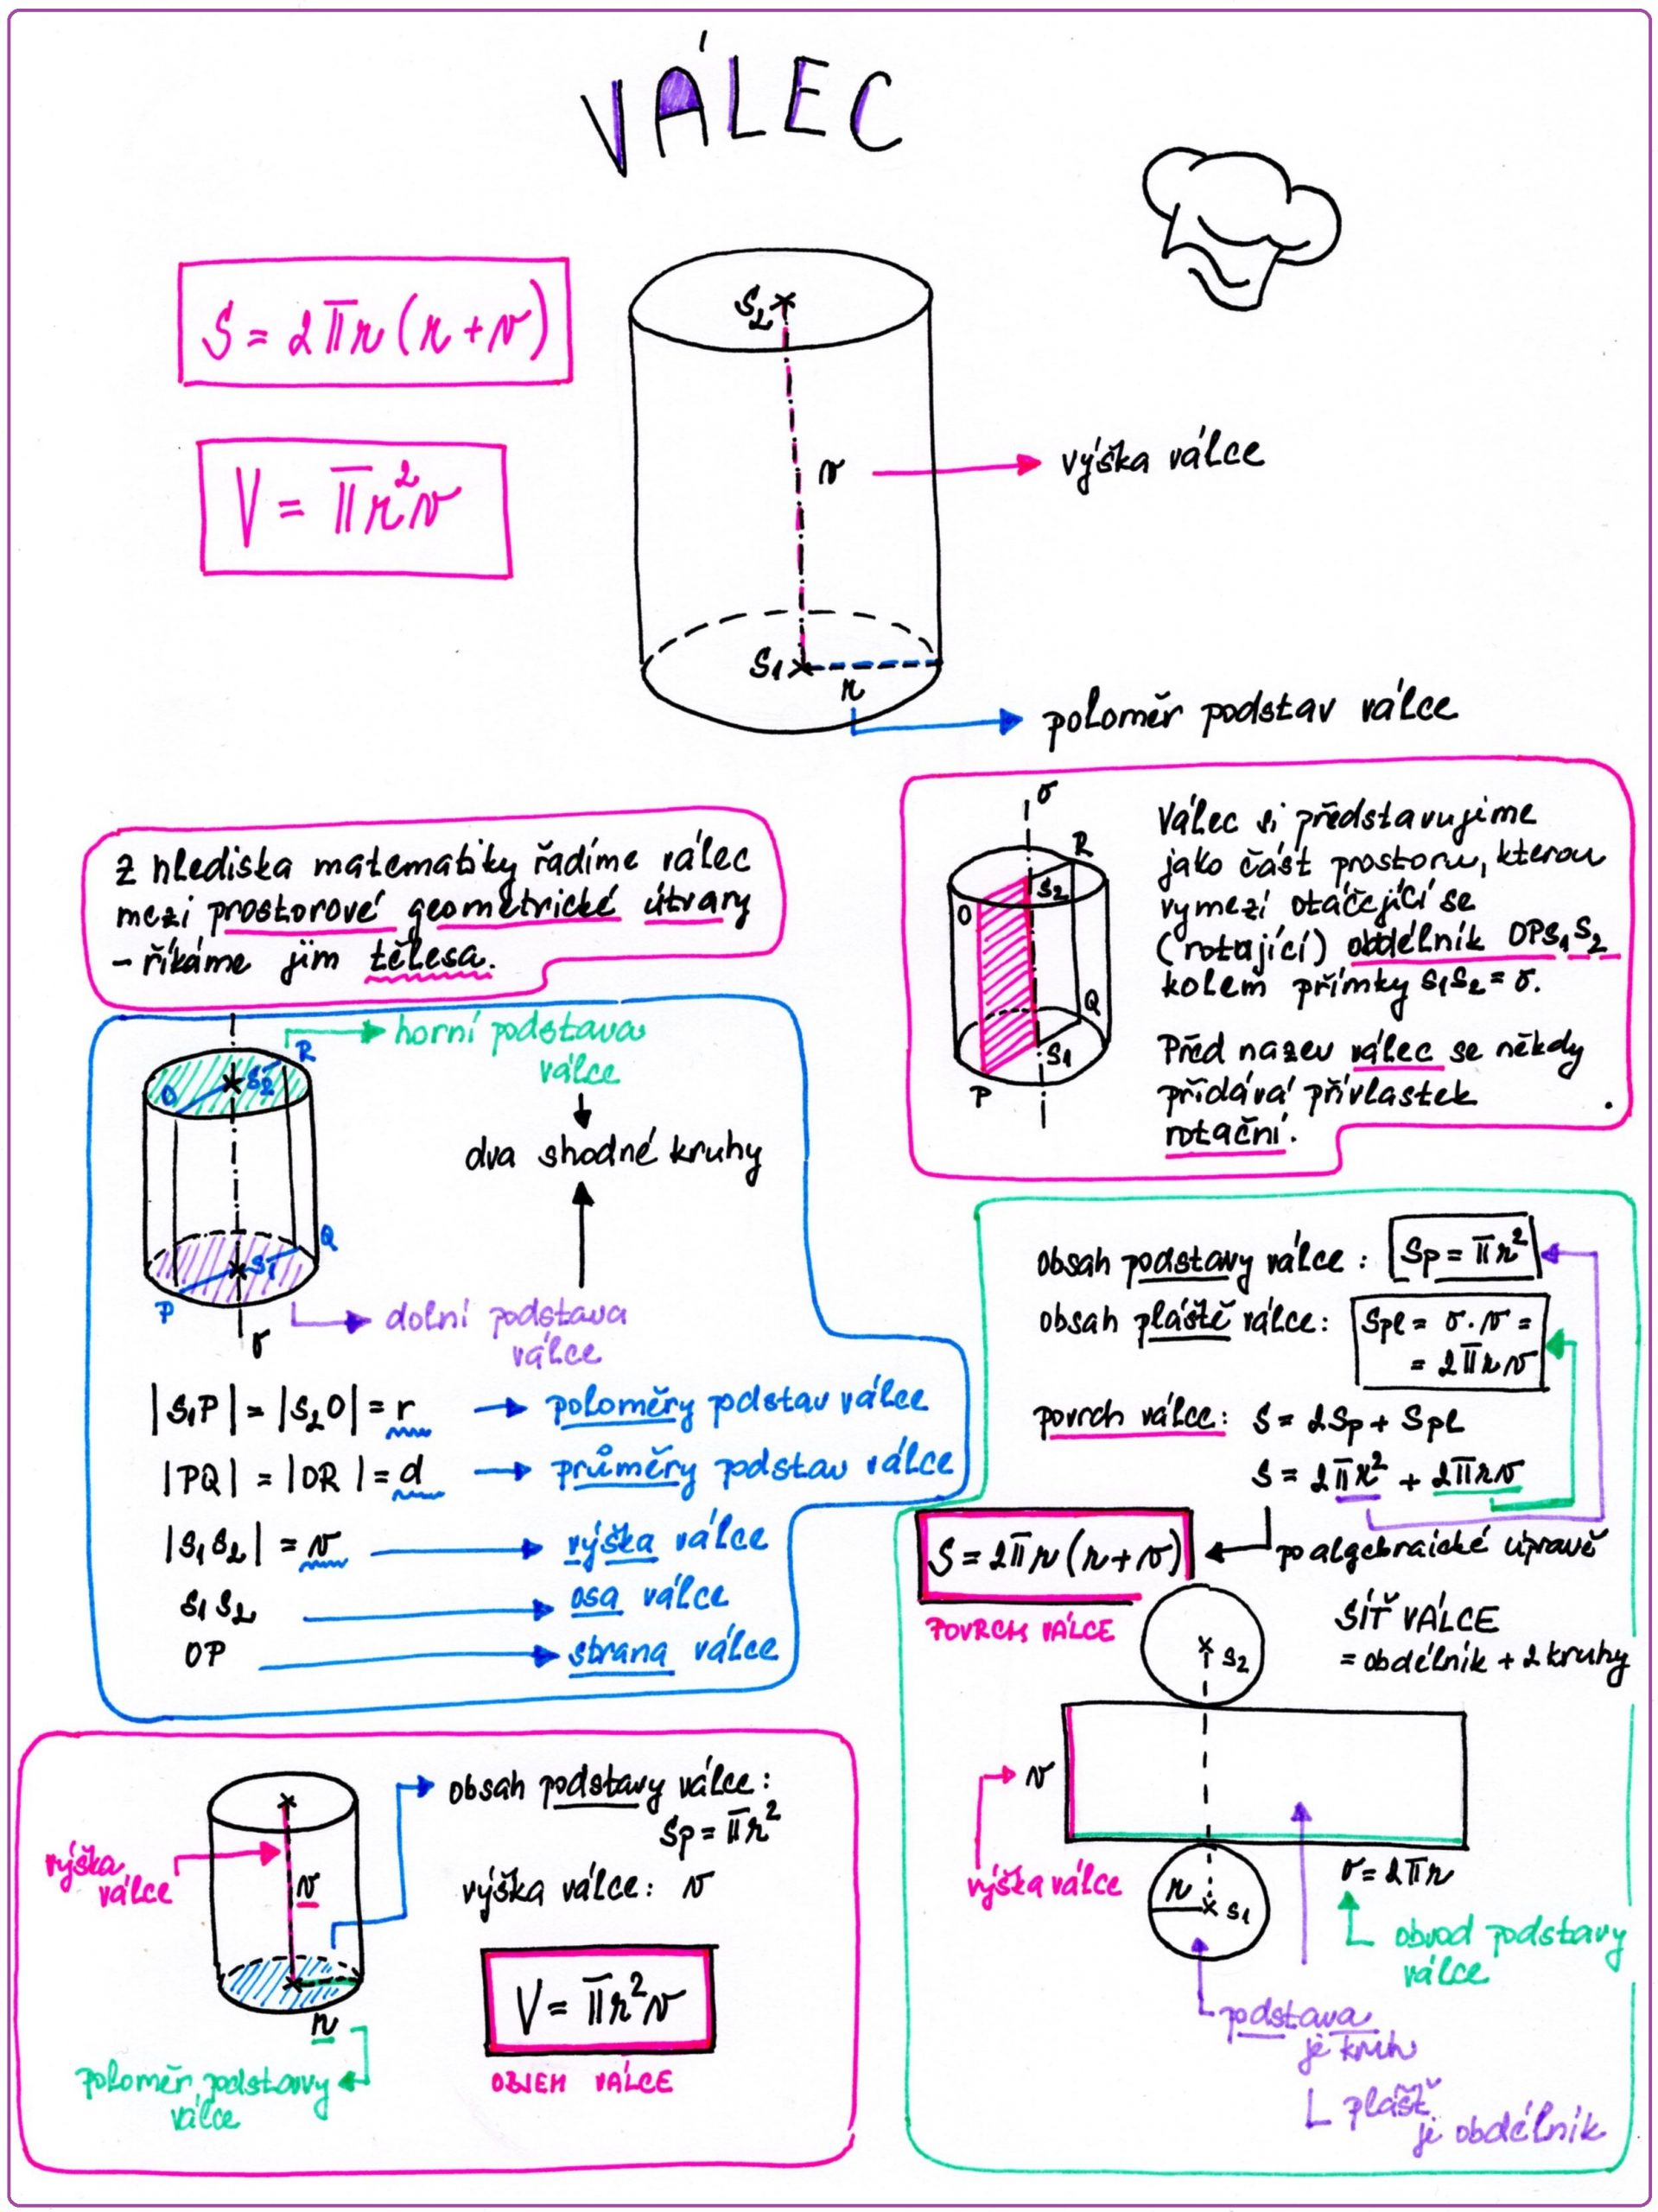 VÁLEC
S = 2πr(r+v)
V = πr²v
S₂
v
výška válce
S₁
r
poloměr podstav válce
Z hlediska matematiky řadíme válec
mezi prostorové geometrické útvary
– říkáme jim tělesa.
σ
R
S₂
O
Q
S₁
P
Válec si představujeme
jako část prostoru, kterou
vymezí otáčející se
(rotující) obdélník OPS₁S₂
kolem přímky S₁S₂ = σ.
Před název válec se někdy
přidává přívlastek
rotační.
horní podstava
válce
R
O
S₂
dva shodné kruhy
Q
S₁
P
σ
dolní podstava
válce
|S₁P| = |S₂O| = r poloměry podstav válce
|PQ| = |OR| = d průměry podstav válce
|S₁S₂| = v výška válce
S₁S₂ osa válce
OP strana válce
Obsah podstavy válce: Sp = πr²
obsah pláště válce: Spl = σ·v =
= 2πrv
povrch válce: S = 2Sp + Spl
S = 2πr² + 2πrv
S = 2πr(r+v)
po algebraické úpravě
POVRCH VÁLCE
SÍŤ VÁLCE
= obdélník + 2 kruhy
S₂
v
výška válce
σ = 2πr
r
S₁
obvod podstavy
válce
podstava
je kruh
plášť
je obdélník
obsah podstavy válce:
Sp = πr²
výška
válce
v
výška válce: v
r
V = πr²v
OBJEM VÁLCE
poloměr podstavy
válce